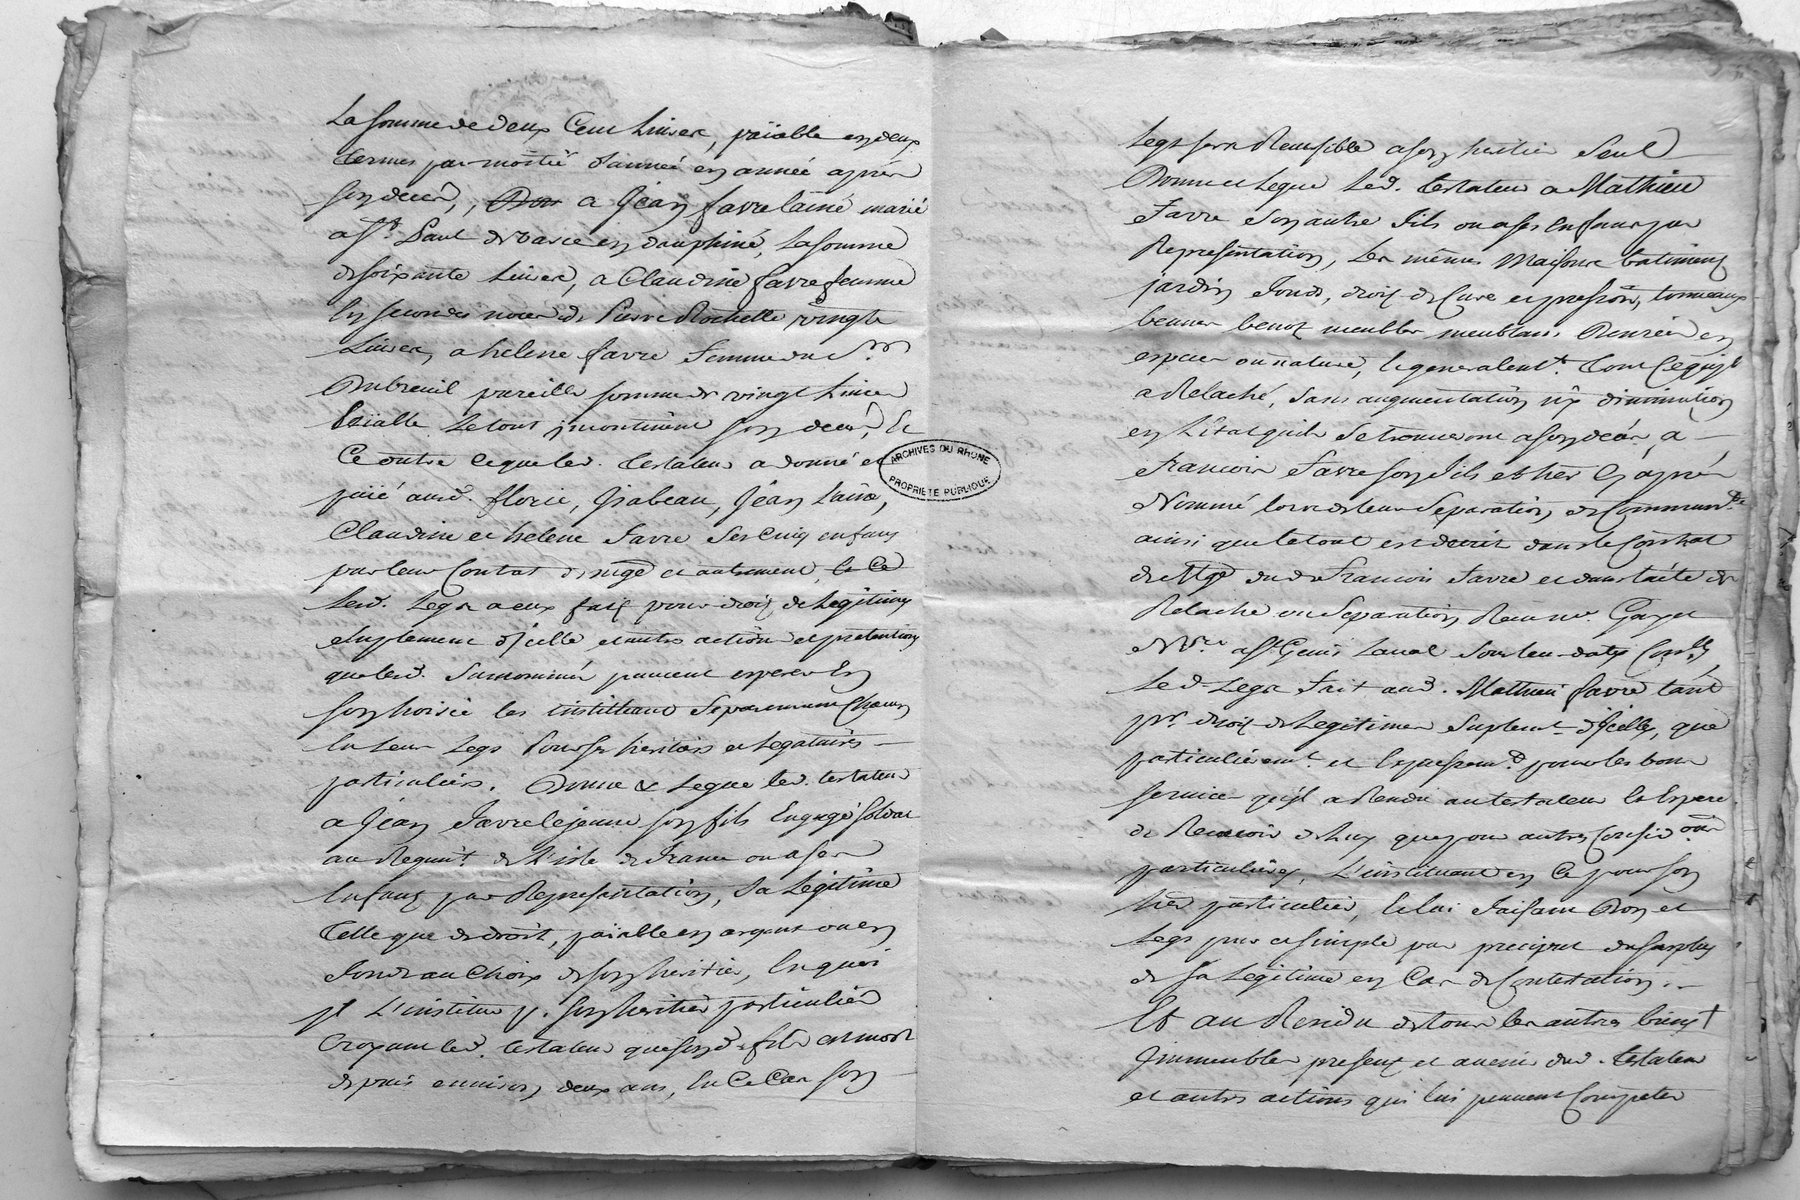 La somme de deux Cent Livres, païable en deux
termes par moitié d'année en année après
son decès, a Jean favre laîné marié
a St. Paul de varce en dauphiné, La somme
de soixante Livres, a Claudine favre femme
En secondes noces de Pierre Rochelle vingt
Livres, a helene favre femme du Sr.
Dubreuil pareille somme de vingt Livres
Païable Le tout incontinent son decès, &
Ce outre ce que led. testateur a donné et
païé auxd. florie, Isabeau, Jean Laîné,
Claudine et helene favre ses Cinq enfans
par leur Contrat de mge et autrement, & Ce
Led. Legs a eux fait pour droit de Legitime
suplement d'icelle et autres actions et pretentions
que lesd. surnommés peuvent esperer En
son hoirie les instituant Separement Chacun
En Leur Legs Pour ses heritiers et Legataires
particuliers. Donne & Legue led. testateur
a Jean favre lejeune son fils Engagé soldat
au Regimt. de L'isle de france ou a ses
Enfans par Representation, Sa Legitime
telle que de droit, païable en argent ou en
fonds au Choix de son heritier, En quoi
il L'institue p. son heritier particulier
Croyant led. testateur que sond. fils est mort
depuis environ deux ans, En Ce Cas son
Legs sera Reversible a son heritier Seul
Donne et Legue Led. testateur a Mathieu
favre Son autre fils ou a ses Enfans par
Representation, Les mêmes Maisons batiments
jardin fonds, droit de Cuve et pressoir, tonneaux
bennes benot meubles meublans, Denrées en
especes ou nature, & generalemt. tout Ce qu'il
a Relaché, sans augmentation ny diminution
en L'état qu'ils se trouveront a son decès, a
francois favre son fils et her Cy après
Nommé lors de leur Separation de Communté
ainsi que le tout est decrit dans le Contrat
de Mge dud francois favre et dans l'acte de
Relache ou Separation Recu me. Gayet
Nre. a St Genis Laval sous leur dates
Led Legs fait aud. Mathieu favre tant
pr. droit de Legitime Suplemt. d'icelle, que
particulieremt. et Expressemt. pour les bons
services qu'il a Rendu au testateur & Espere
de Recevoir de Luy que pour autres Considons
particulieres, L'instituant en Ce pour son
her particulier, & lui faisant Don et
Legs pur et simple par preciput du surplus
de sa Legitime en Cas de Contestation.
Et au Residu de tous les autres biens
Immeubles presens et avenir dud. testateur
et autres actions qui lui peuvent Competer
ARCHIVES DU RHÔNE
PROPRIÉTÉ PUBLIQUE